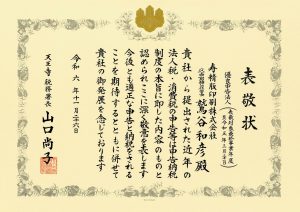 表敬状
寿精版印刷株式会社
鷲谷和彦殿
貴社から提出された近年の
法人税・消費税の申告等は申告納税
制度の本旨に即した内容のものと
認められここに深く敬意を表します
今後とも適正な申告と納税をされる
ことを期待するとともに併せて
貴社の御発展を祈念しております
令和六年十一月二十六日
天王寺税務署長
山口尚子